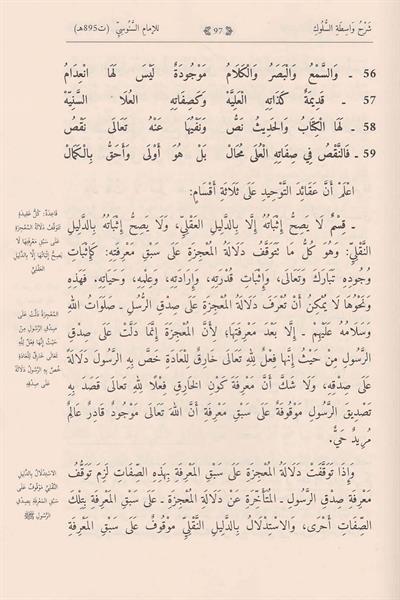 شَرْحُ وَاسِطَةِ السُّلُوكِ
97
للإمام السَّنُوسِيِّ (ت895هـ)
56 ـ وَالسَّمْعُ وَالْبَصَرُ وَالْكَلَامُ مَوْجُودَةٌ لَيْسَ لَهَا انْعِدَامُ
57 ـ قَدِيمَةٌ كَذَاتِهِ الْعَلِيَّهْ وَكَصِفَاتِهِ الْعُلَا السَّنِيَّهْ
58 ـ لَهَا الْكِتَابُ وَالْحَدِيثُ نَصُّ وَنَفْيُهَا عَنْهُ تَعَالَى نَقْصُ
59 ـ فَالنَّقْصُ فِي صِفَاتِهِ الْعُلَى مُحَالْ بَلْ هُوَ أَوْلَى وَأَحَقُّ بِالْكَمَالْ
اعْلَمْ أَنَّ عَقَائِدَ التَّوْحِيدِ عَلَى ثَلَاثَةِ أَقْسَامٍ:
ـ قِسْمٌ لَا يَصِحُّ إِثْبَاتُهُ إِلَّا بِالدَّلِيلِ العَقْلِيِّ، وَلَا يَصِحُّ إِثْبَاتُهُ بِالدَّلِيلِ
النَّقْلِيِّ: وَهُوَ كُلُّ مَا تَتَوَقَّفُ دَلَالَةُ المُعْجِزَةِ عَلَى سَبْقِ مَعْرِفَتِهِ: كَإِثْبَاتِ
وُجُودِهِ تَبَارَكَ وَتَعَالَى، وَإِثْبَاتِ قُدْرَتِهِ، وَإِرَادَتِهِ، وَعِلْمِهِ، وَحَيَاتِهِ. فَهَذِهِ
وَنَحْوُهَا لَا يُمْكِنُ أَنْ تُعْرَفَ دَلَالَةُ المُعْجِزَةِ عَلَى صِدْقِ الرُّسُلِ ـ صَلَوَاتُ اللهِ
وَسَلَامُهُ عَلَيْهِمْ ـ إِلَّا بَعْدَ مَعْرِفَتِهَا؛ لِأَنَّ المُعْجِزَةَ إِنَّمَا دَلَّتْ عَلَى صِدْقِ
الرَّسُولِ مِنْ حَيْثُ إِنَّهَا فِعْلٌ لِلهِ تَعَالَى خَارِقٌ لِلْعَادَةِ خَصَّ بِهِ الرَّسُولَ دَلَالَةً
عَلَى صِدْقِهِ، وَلَا شَكَّ أَنَّ مَعْرِفَةَ كَوْنِ الخَارِقِ فِعْلًا لِلهِ تَعَالَى قَصَدَ بِهِ
تَصْدِيقَ الرَّسُولِ مَوْقُوفَةٌ عَلَى سَبْقِ مَعْرِفَةِ أَنَّ اللهَ تَعَالَى مَوْجُودٌ قَادِرٌ عَالِمٌ
مُرِيدٌ حَيٌّ.
وَإِذَا تَوَقَّفَتْ دَلَالَةُ المُعْجِزَةِ عَلَى سَبْقِ المَعْرِفَةِ بِهَذِهِ الصِّفَاتِ لَزِمَ تَوَقُّفُ
مَعْرِفَةِ صِدْقِ الرَّسُولِ ـ المُتَأَخِّرَةِ عَنْ دَلَالَةِ المُعْجِزَةِ ـ عَلَى سَبْقِ المَعْرِفَةِ بِتِلْكَ
الصِّفَاتِ أَحْرَى، وَالاسْتِدْلَالُ بِالدَّلِيلِ النَّقْلِيِّ مَوْقُوفٌ عَلَى سَبْقِ المَعْرِفَةِ
قَاعِدَةٌ: كُلُّ عَقِيدَةٍ
تَتَوَقَّفُ دَلَالَةُ المُعْجِزَةِ
عَلَى سَبْقِ مَعْرِفَتِهَا لَا
يَصِحُّ إِثْبَاتُهَا إِلَّا بِالدَّلِيلِ
العَقْلِيِّ
المُعْجِزَةُ دَلَّتْ عَلَى
صِدْقِ الرَّسُولِ مِنْ
حَيْثُ إِنَّهَا فِعْلٌ لِلهِ
تَعَالَى خَارِقٌ لِلْعَادَةِ
خَصَّ بِهِ الرَّسُولَ دَلَالَةً
عَلَى صِدْقِهِ
الاسْتِدْلَالُ بِالدَّلِيلِ
النَّقْلِيِّ مَوْقُوفٌ عَلَى
سَبْقِ المَعْرِفَةِ بِصِدْقِ
الرَّسُولِ ﷺ